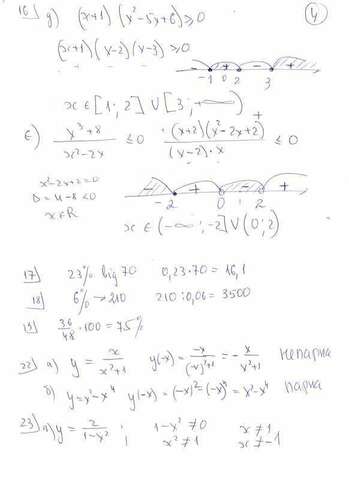 4
16 д) (x+1)(x²-5x+6)≥0
(x+1)(x-2)(x-3)≥0
- + - +
-1 0 2 3
x ∈ [1; 2] ∪ [3; +∞)
е) x³+8 / x²-2x ≤ 0 (x+2)(x²-2x+2) / (x-2)·x ≤ 0
+
x²-2x+2=0
D=4-8<0
x∈R
- + - +
-2 0 2
x ∈ (-∞; -2] ∪ (0; 2)
17) 23% від 70 0,23·70 = 16,1
18) 6% → 210 210:0,06 = 3500
19) 36/48 · 100 = 75%
22) а) y = x/x²+1 y(-x) = -x/(-x)²+1 = - x/x²+1 Непарна
б) y=x²-x⁴ y(-x) = (-x)²-(-x)⁴ = x²-x⁴ парна
23) а) y = 2/1-x² ; 1-x²≠0 x≠1
x²≠1 x≠-1